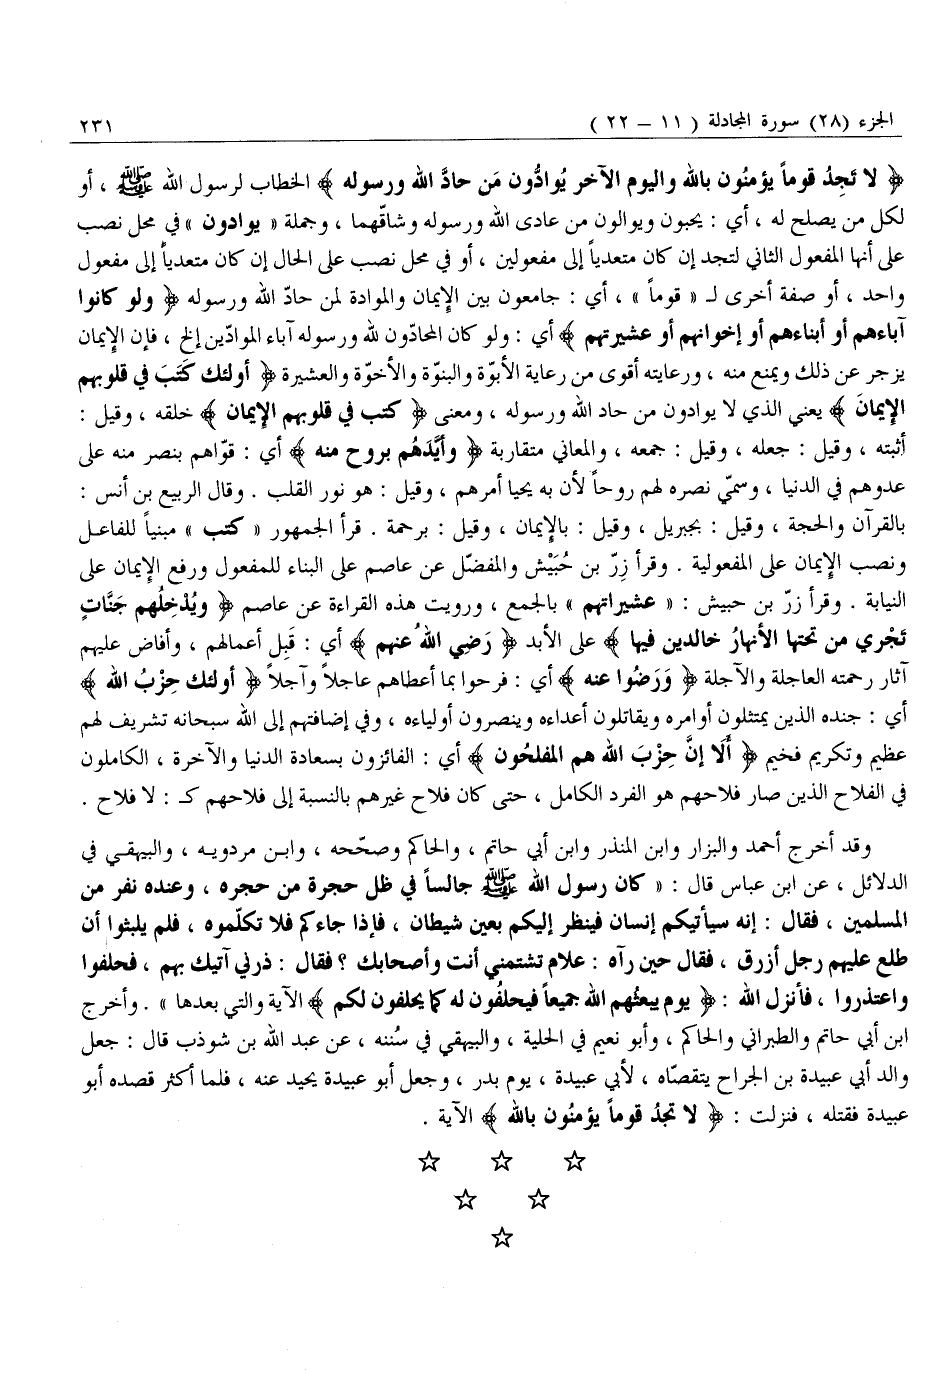 الجزء (٢٨) سورة المجادلة ( ١١ – ٢٢ ) ٢٣١
﴿ لا تَجِدُ قوماً يؤمنُون بالله واليوم الآخر يُوادُّون مَن حادَّ الله ورسوله ﴾ الخطاب لرسول الله ﷺ ، أو
لكل من يصلح له ، أي : يحبون ويوالون من عادى الله ورسوله وشاقّهما ، وجملة « يوادون » في محل نصب
على أنها المفعول الثاني لتجد إن كان متعدياً إلى مفعولين ، أو في محل نصب على الحال إن كان متعدياً إلى مفعول
واحد ، أو صفة أخرى لـ « قوماً » ، أي : جامعون بين الإيمان والموادة لمن حادّ الله ورسوله ﴿ ولو كانوا
آباءهم أو أبناءهم أو إخوانهم أو عشيرتهم ﴾ أي : ولو كان المحادّون لله ورسوله آباء الموادّين إلخ ، فإن الإيمان
يزجر عن ذلك ويمنع منه ، ورعايته أقوى من رعاية الأبوّة والبنوّة والأخوّة والعشيرة ﴿ أولئك كَتَبَ في قلوبهم
الإيمانَ ﴾ يعني الذي لا يوادون من حاد الله ورسوله ، ومعنى ﴿ كتب في قلوبهم الإيمان ﴾ خلقه ، وقيل :
أثبته ، وقيل : جعله ، وقيل : جمعه ، والمعاني متقاربة ﴿ وأيَّدَهُم بروح منه ﴾ أي : قوّاهم بنصر منه على
عدوهم في الدنيا ، وسمّي نصره لهم روحاً لأن به يحيا أمرهم ، وقيل : هو نور القلب . وقال الربيع بن أنس :
بالقرآن والحجة ، وقيل : بجبريل ، وقيل : بالإيمان ، وقيل : برحمة . قرأ الجمهور « كتب » مبنياً للفاعـل
ونصب الإيمان على المفعولية . وقرأ زِرّ بن حُبَيْش والمفضّل عن عاصم على البناء للمفعول ورفع الإيمان على
النيابة . وقرأ زرّ بن حبيش : « عشيراتهم » بالجمع ، ورويت هذه القراءة عن عاصم ﴿ ويُدْخِلُهم جَنَّاتٍ
تَجْري من تحتها الأنهارُ خالدين فيها ﴾ على الأبد ﴿ رَضِي اللهُ عنهم ﴾ أي : قَبِل أعمالهم ، وأفاض عليهم
آثار رحمته العاجلة والآجلة ﴿ وَرَضُوا عنه ﴾ أي : فرحوا بما أعطاهم عاجلاً وآجلاً ﴿ أولئك حِزْبُ الله ﴾
أي : جنده الذين يمتثلون أوامره ويقاتلون أعداءه وينصرون أولياءه ، وفي إضافتهم إلى الله سبحانه تشريف لهم
عظيم وتكريم فخيم ﴿ أَلَا إنَّ حِزْبَ الله هم المفلحُون ﴾ أي : الفائزون بسعادة الدنيا والآخرة ، الكاملون
في الفلاح الذين صار فلاحهم هو الفرد الكامل ، حتى كان فلاح غيرهم بالنسبة إلى فلاحهم كـ : لا فلاح .
وقد أخرج أحمد والبزار وابن المنذر وابن أبي حاتم ، والحاكم وصحّحه ، وابـن مردويـه ، والبيهقـي في
الدلائل ، عن ابن عباس قال : « كان رسول الله ﷺ جالساً في ظل حجرة من حجره ، وعنده نفر من
المسلمين ، فقال : إنه سيأتيكم إنسان فينظر إليكم بعين شيطان ، فإذا جاءكم فلا تكلّموه ، فلم يلبثوا أن
طلع عليهم رجل أزرق ، فقال حين رآه : علام تشتمني أنت وأصحابك ؟ فقال : ذرني آتيك بهم ، فحلفوا
واعتذروا ، فأنزل الله : ﴿ يوم يبعثُهم الله جميعاً فيحلفُون له كما يحلفون لكم ﴾ الآية والتي بعدها » . وأخرج
ابن أبي حاتم والطبراني والحاكم ، وأبو نعيم في الحلية ، والبيهقي في سُننه ، عن عبد الله بن شوذب قال : جعل
والد أبي عبيدة بن الجراح يتقصّاه ، لأبي عبيدة ، يوم بدر ، وجعل أبو عبيدة يحيد عنه ، فلما أكثر قصده أبو
عبيدة فقتله ، فنزلت : ﴿ لا تجدُ قوماً يؤمنُون بالله ﴾ الآية .